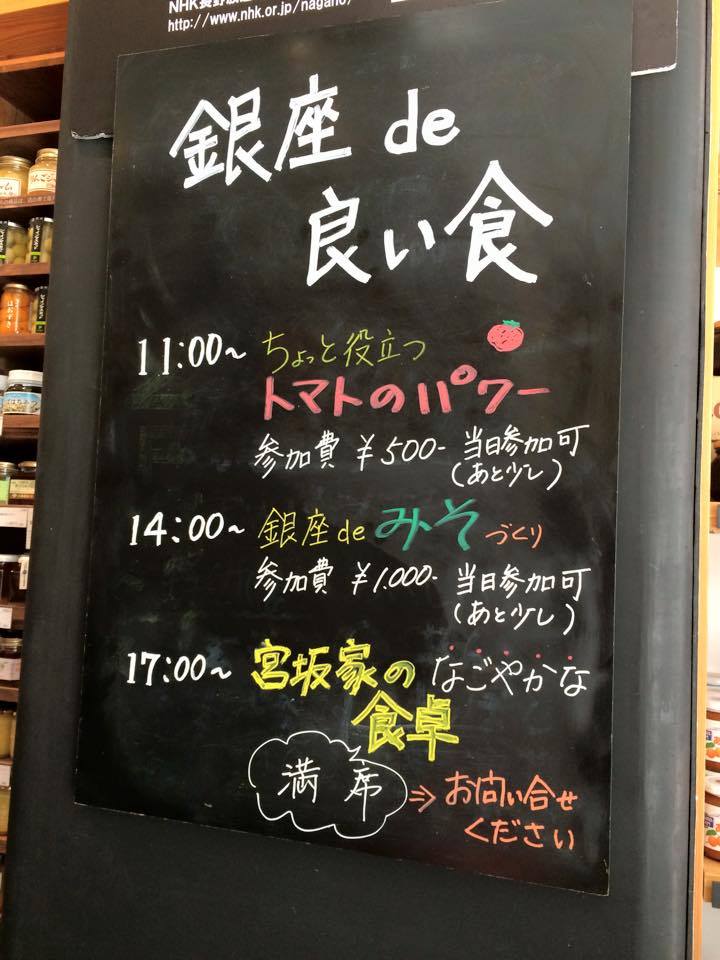 NHK長野放送
http://www.nhk.or.jp/nagano/
銀座 de
良い食
11:00~ ちょっと役立つ
トマトのパワー
参加費 ¥500- 当日参加可
(あと少し)
14:00~ 銀座 de みそ づくり
参加費 ¥1.000- 当日参加可
(あと少し)
17:00~ 宮坂家の なごやかな
食卓
満席 ⇒ お問い合せ
ください